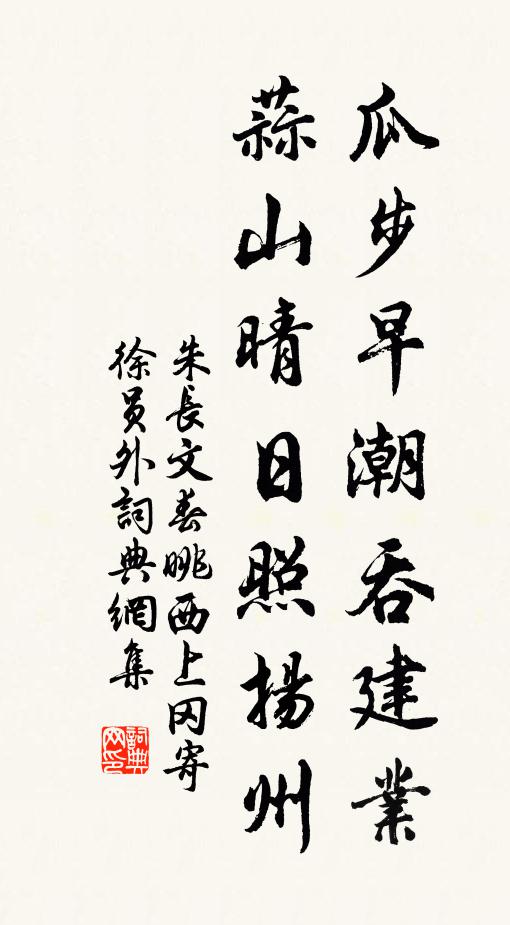 瓜步早潮吞建業
蒜山晴日照揚州
朱長文春眺西上冈寄
徐員外詞典網集
詞典
网印